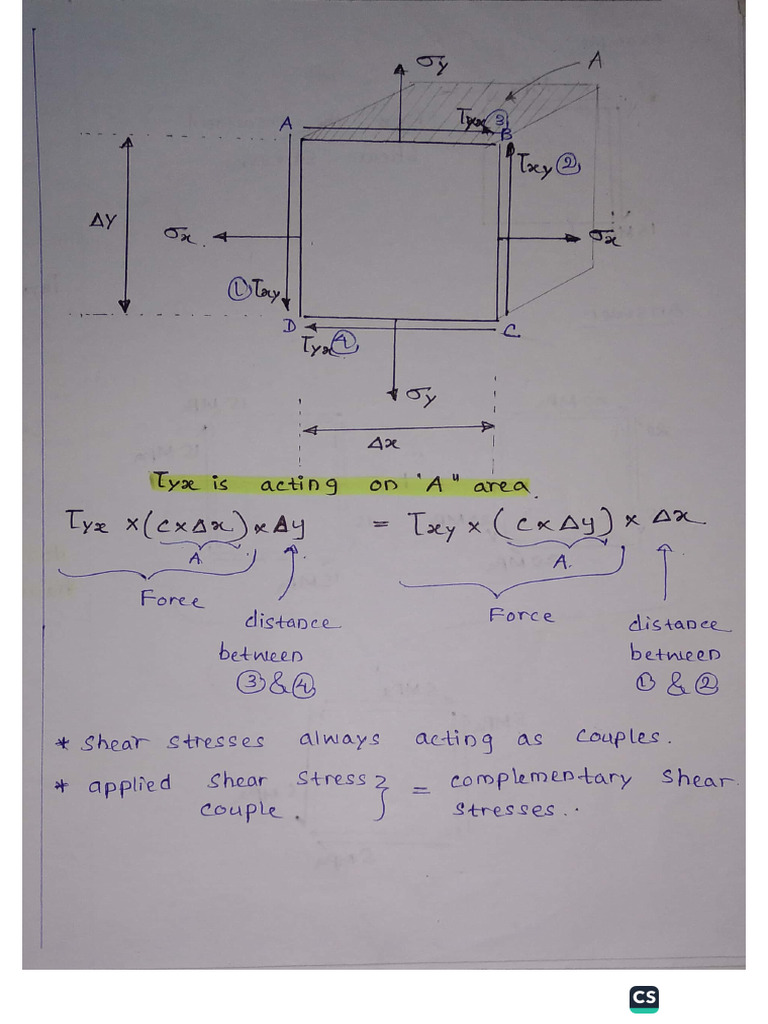 σy
A
τyx ③
A
B
τxy ②
Δy
σx
σx
① τxy
D
τyx ④
C
σy
Δx
τyx is acting on "A" area.
τyx × (c×Δx) × Δy = τxy × (c×Δy) × Δx
A. A.
Force Force
distance distance
between between
③ & ④ ① & ②
* Shear stresses always acting as couples.
* applied shear stress } = complementary shear
couple. stresses..
CS